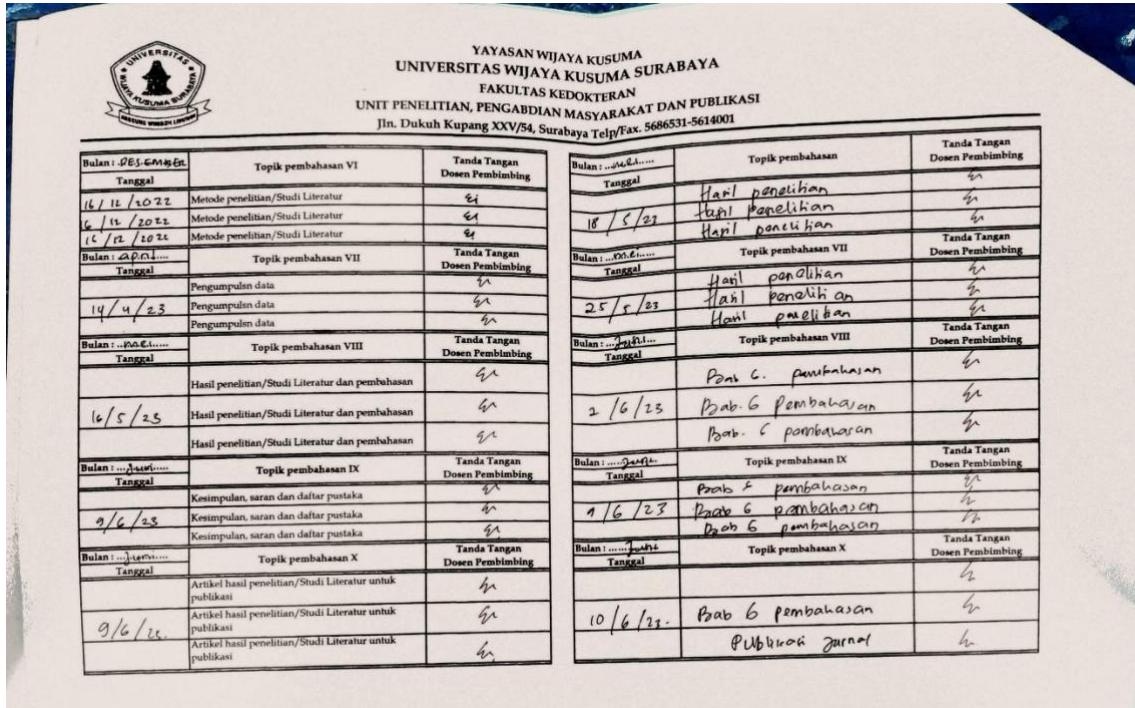 UNIVERSITAS
WIJAYA KUSUMA SURABAYA
YAYASAN WIJAYA KUSUMA
UNIVERSITAS WIJAYA KUSUMA SURABAYA
FAKULTAS KEDOKTERAN
UNIT PENELITIAN, PENGABDIAN MASYARAKAT DAN PUBLIKASI
Jln. Dukuh Kupang XXV/54, Surabaya Telp/Fax. 5686531-5614001
Bulan : DESEMBER Topik pembahasan VI Tanda Tangan Dosen Pembimbing
Tanggal
16/12/2022 Metode penelitian/Studi Literatur
16/12/2022 Metode penelitian/Studi Literatur
16/12/2022 Metode penelitian/Studi Literatur
Bulan : april Topik pembahasan VII Tanda Tangan Dosen Pembimbing
Tanggal
Pengumpulsn data
14/4/23 Pengumpulsn data
Pengumpulsn data
Bulan : mei Topik pembahasan VIII Tanda Tangan Dosen Pembimbing
Tanggal
Hasil penelitian/Studi Literatur dan pembahasan
16/5/23 Hasil penelitian/Studi Literatur dan pembahasan
Hasil penelitian/Studi Literatur dan pembahasan
Bulan : Juni Topik pembahasan IX Tanda Tangan Dosen Pembimbing
Tanggal
Kesimpulan, saran dan daftar pustaka
9/6/23 Kesimpulan, saran dan daftar pustaka
Kesimpulan, saran dan daftar pustaka
Bulan : Juni Topik pembahasan X Tanda Tangan Dosen Pembimbing
Tanggal
Artikel hasil penelitian/Studi Literatur untuk
publikasi
Artikel hasil penelitian/Studi Literatur untuk
9/6/23. publikasi
Artikel hasil penelitian/Studi Literatur untuk
publikasi
Bulan : mei Topik pembahasan Tanda Tangan Dosen Pembimbing
Tanggal
Hasil penelitian
18/5/23 Hasil penelitian
Hasil penelitian
Bulan : mei Topik pembahasan VII Tanda Tangan Dosen Pembimbing
Tanggal
Hasil penelitian
25/5/23 Hasil penelitian
Hasil penelitian
Bulan : Juni Topik pembahasan VIII Tanda Tangan Dosen Pembimbing
Tanggal
Bab 6. pembahasan
2/6/23 Bab. 6 Pembahasan
Bab. 6 pembahasan
Bulan : Juni Topik pembahasan IX Tanda Tangan Dosen Pembimbing
Tanggal
Bab 6 pembahasan
9/6/23 Bab 6 pembahasan
Bab 6 pembahasan
Bulan : Juni Topik pembahasan X Tanda Tangan Dosen Pembimbing
Tanggal
10/6/23. Bab 6 pembahasan
Publikasi Jurnal